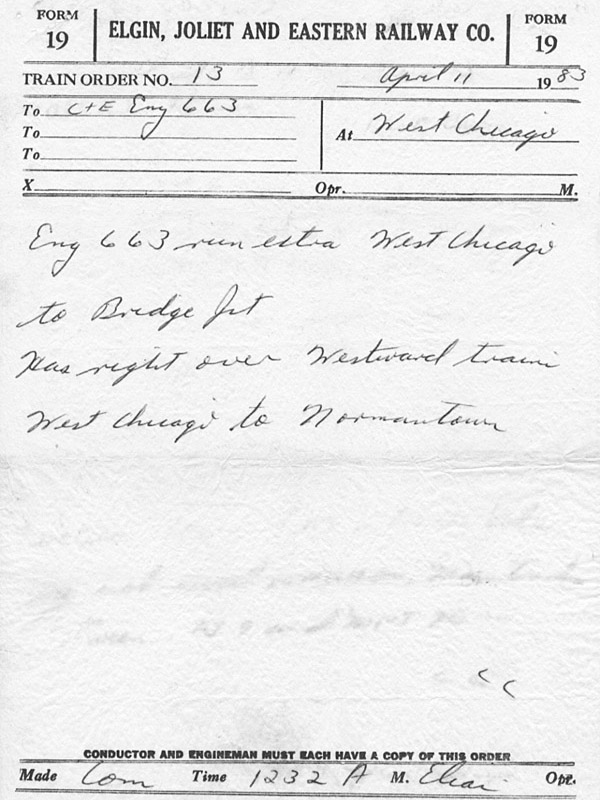 FORM 19 ELGIN, JOLIET AND EASTERN RAILWAY CO. FORM 19
TRAIN ORDER NO. 13 April 11 1983
To C+E Eng 663
To At West Chicago
To
X Opr. M.
Eng 663 run extra West Chicago
to Bridge Jct
Has right over Westward trains
West Chicago to Normantown
CONDUCTOR AND ENGINEMAN MUST EACH HAVE A COPY OF THIS ORDER
Made Com Time 1232 A M. Opr.